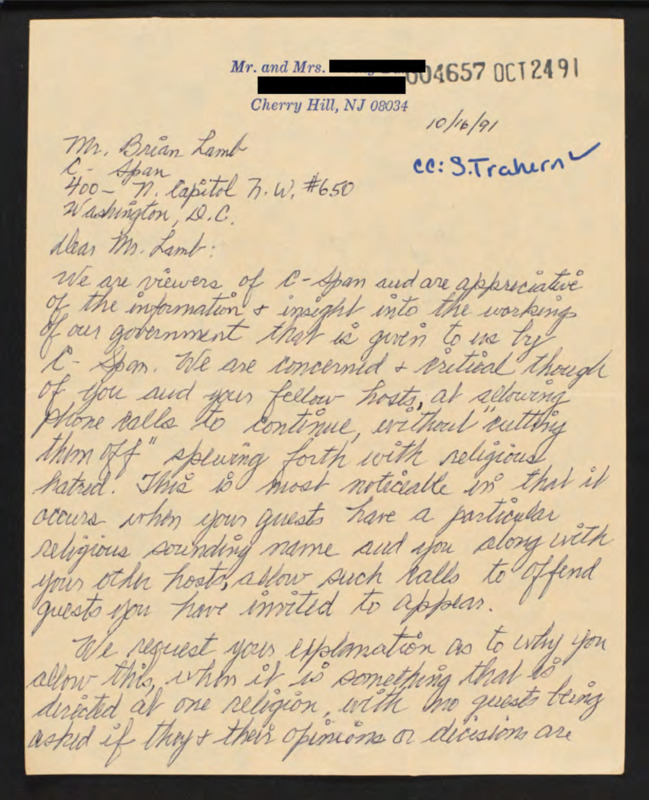 Mr. and Mrs.
004657 OCT 24 91
Cherry Hill, NJ 08034
10/16/91
cc: S. Trahern ✓
Mr. Brian Lamb
C- Span
400- N. Capitol N.W. #650
Washington, D.C.
Dear Mr. Lamb:
We are viewers of C-Span and are appreciative
of the information & insight into the workings
of our government that is given to us by
C- Span. We are concerned & critical though
of you and your fellow hosts, at allowing
phone calls to continue, without "cutting
them off" spewing forth with religious
hatred. This is most noticeable in that it
occurs when your guests have a particular
religious sounding name and you along with
your other hosts, allow such calls to offend
guests you have invited to appear.
We request your explanation as to why you
allow this, when it is something that is
directed at one religion, with no guests being
asked if they & their opinions or decisions are